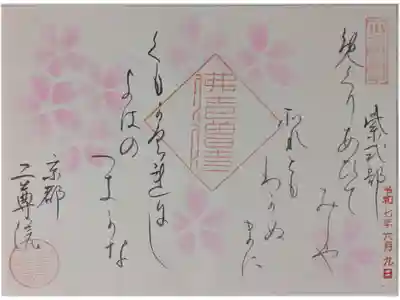 紫式部
めくりあひて
みしや
それとも
わかぬ
まに
佛法僧寶
くもかくれにし
よはの
つきかな
京都
二尊院
令和七年六月九日